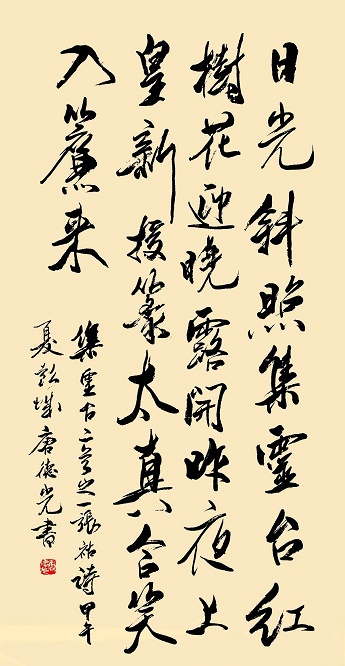 日光斜照集靈台紅
樹花迎曉露開昨夜上
皇新授籙太真含笑
入簾来
集灵台二首之一張祜詩甲午
夏彭城唐德光書